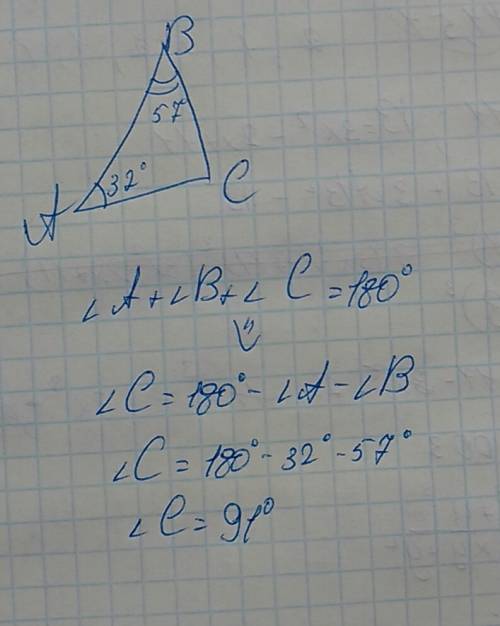 B
57
32°
A
C
∠A+∠B+∠C=180°
⇓
∠C=180°-∠A-∠B
∠C=180°-32°-57°
∠C=91°